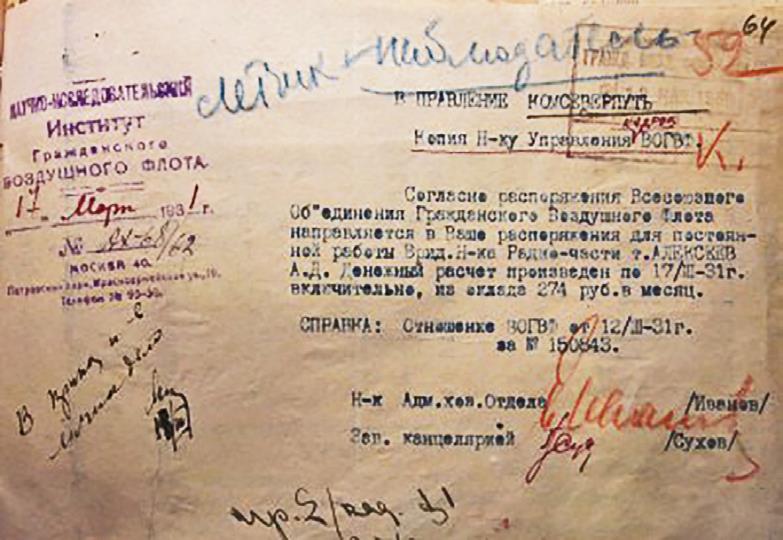 64
летчик-наблюдатель
59
ГРАЖД.
НАУЧНО-ИССЛЕДОВАТЕЛЬСКИЙ
Институт
Гражданского
ВОЗДУШНОГО ФЛОТА.
17 Март 1931 г.
№
МОСКВА 40.
Петровский парк, Красноармейская ул., 19.
Телефон №
В ПРАВЛЕНИЕ КОМСЕВЕРПУТЬ
кадров
Копия Н-ку Управления ВОГВФ.
Согласно распоряжения Всесоюзного
Об"единения Гражданского Воздушного Флота
направляется в Ваше распоряжения для постоян-
ной работы Врид.Н-ка Радио-части т.АЛЕКСЕЕВ
А.Д. Денежный расчет произведен по 17/III-31г.
включительно, из оклада 274 руб.в месяц.
СПРАВКА: Отношение ВОГВФ от 12/III-31г.
за № 150843.
Н-к Адм.хоз.Отдела /Иванов/
Зав. канцелярией /Сухов/
В приказ и в
личное дело